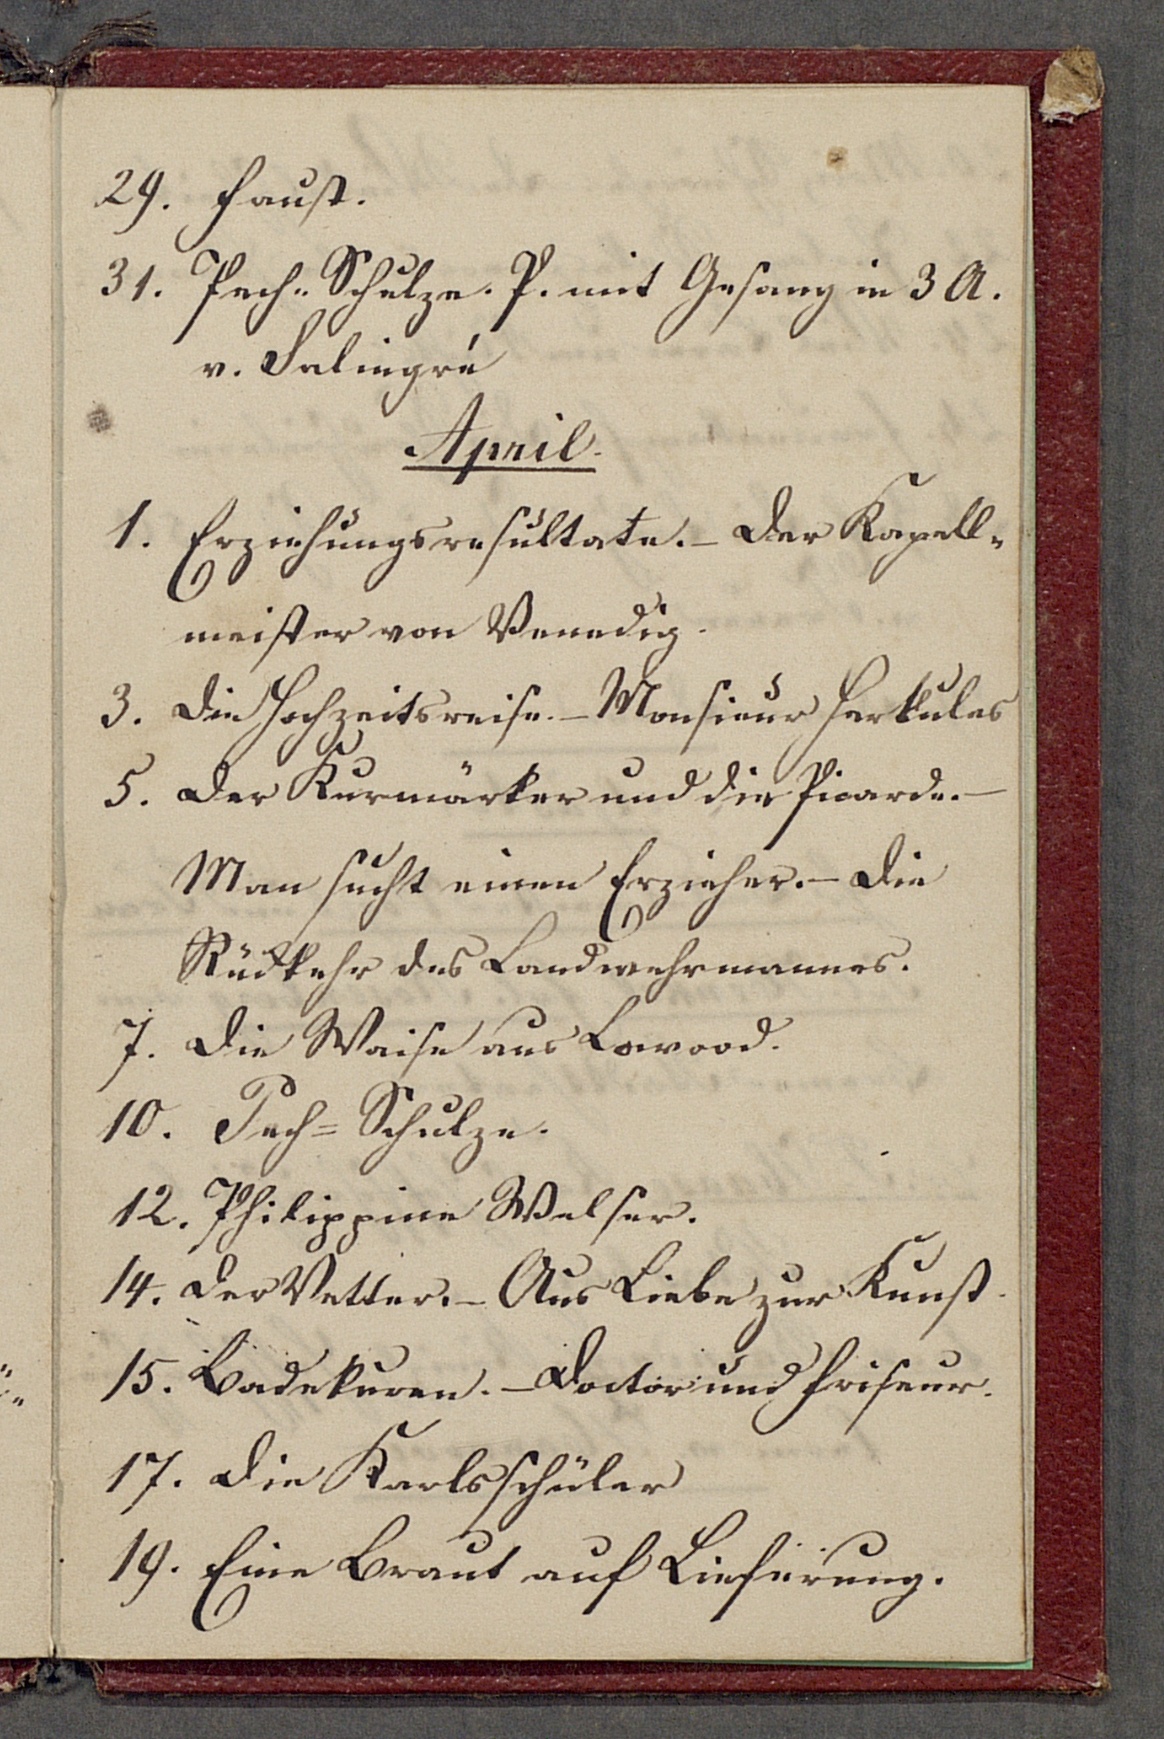 29. Faust.
31. Pech-Schulze. P. mit Gesang in 3 A.
v. Salingré
April.
1. Erziehungsresultate. – Der Kapell-
meister von Venedig.
3. Die Hochzeitsreise. – Monsieur Herkules
5. Der Kurmärker und die Picarde. –
Man sucht einen Erzieher. – Die
Rückkehr des Landwehrmannes.
7. Die Waise aus Lowood.
10. Pech=Schulze.
12. Philippine Welser.
14. Der Vetter. – Aus Liebe zur Kunst.
15. Badekuren. – Doctor und Friseur.
17. Die Karlsschüler
19. Eine Braut auf Lieferung.